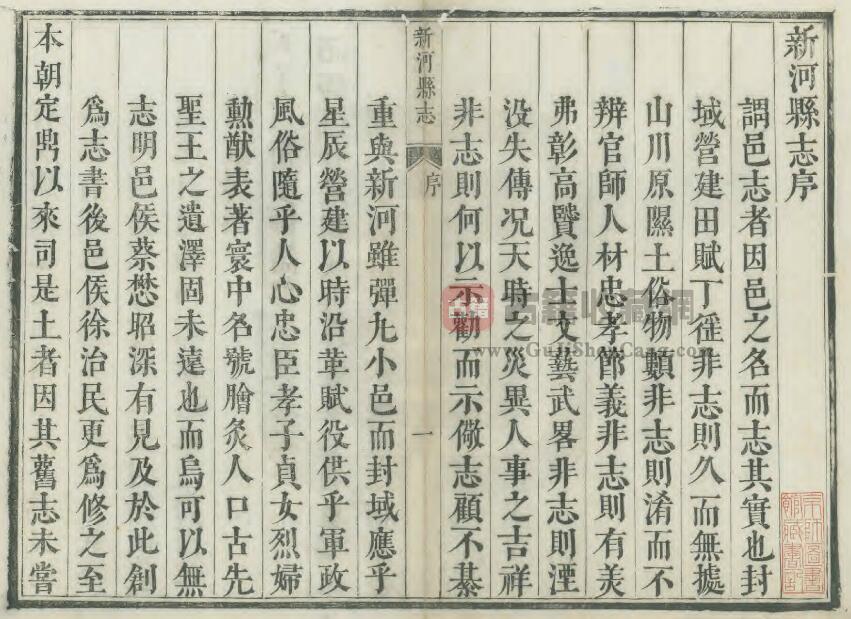 新河縣志序
謂邑志者因邑之名而志其實也封
域營建田賦丁徭非志則久而無據
山川原隰土俗物類非志則淆而不
辨官師人材忠孝節義非志則有美
弗彰高賢逸士文藝武畧非志則湮
没失傳况天時之災異人事之吉祥
非志則何以示勸而示儆志顧不綦
新河縣志
序
一
重與新河雖彈丸小邑而封域應乎
星辰營建以時沿革賦役供乎軍政
風俗隨乎人心忠臣孝子貞女烈婦
勲猷表著寰中名號膾炙人口古先
聖王之遺澤固未遠也而烏可以無
志明邑侯蔡懋昭深有見及於此創
爲志書後邑侯徐治民更爲修之至
本朝定鼎以來司是土者因其舊志未嘗
古籍收藏網
www.GuJiShouCang.com
古籍